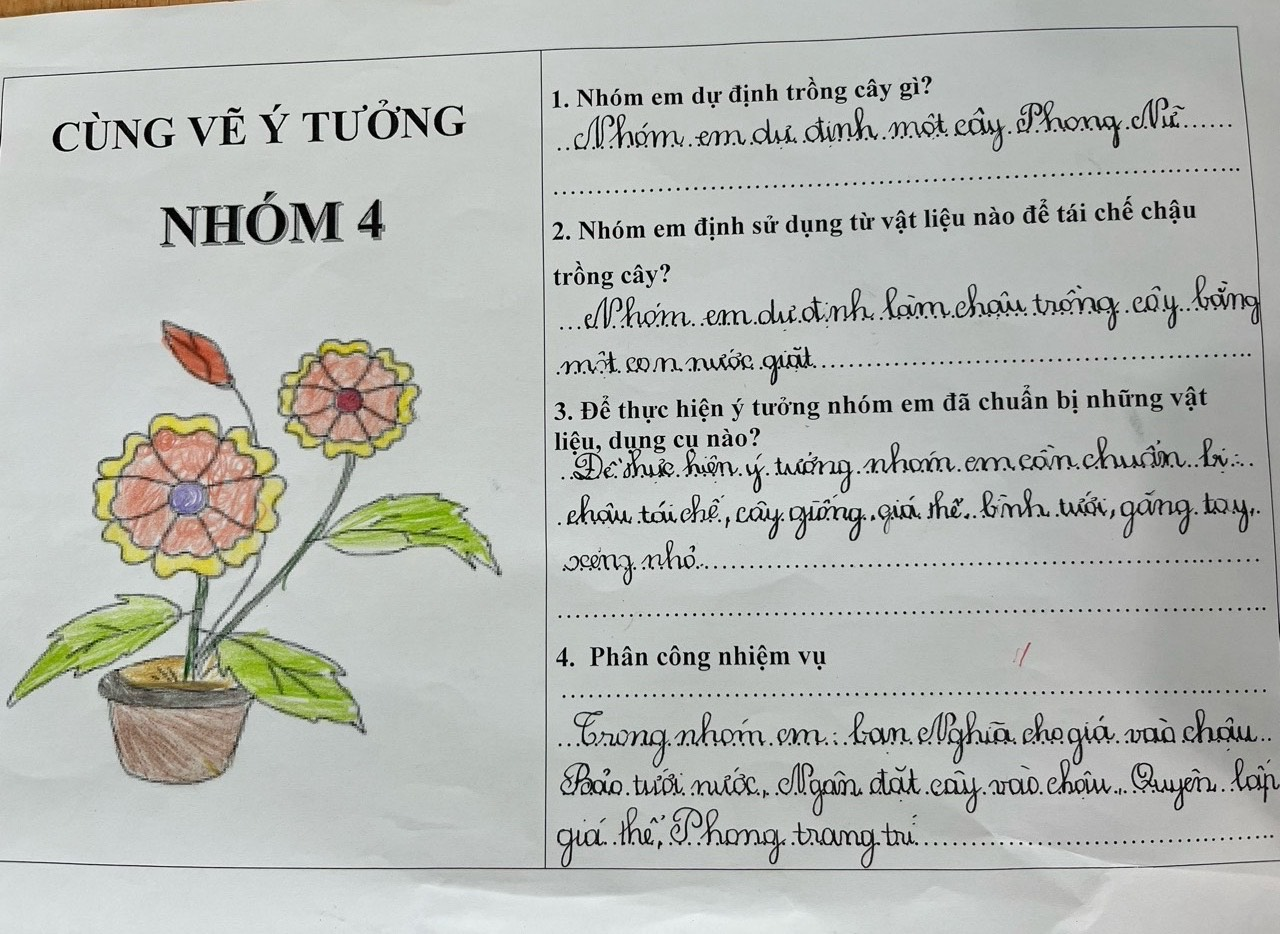 CÙNG VẼ Ý TƯỞNG
NHÓM 4
1. Nhóm em dự định trồng cây gì?
Nhóm em dự định một cây Phong Nữ
2. Nhóm em định sử dụng từ vật liệu nào để tái chế chậu
trồng cây?
Nhóm em dự định làm chậu trồng cây bằng
một con nước giặt
3. Để thực hiện ý tưởng nhóm em đã chuẩn bị những vật
liệu, dụng cụ nào?
Để thực hiện ý tưởng nhóm em cần chuẩn bị:
chậu tái chế, cây giống, giá thể, bình tưới, găng tay,
xẻng nhỏ
4. Phân công nhiệm vụ
Trong nhóm em: bạn Nghĩa cho giá vào chậu
Bảo tưới nước, Ngân đặt cây vào chậu, Quyên lấp
giá thể, Phong trang trí